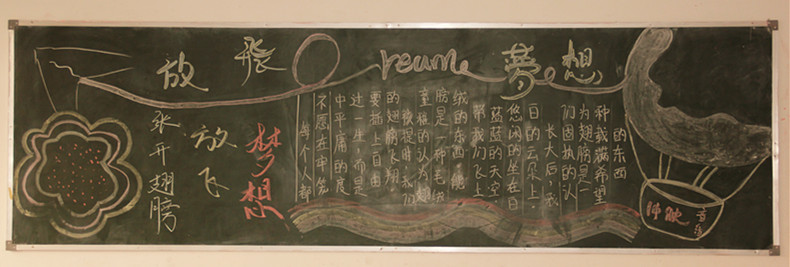 放飛
夢想
张开翅膀
放飞
梦想
每个人都
不愿在
中平庸的度
过一生,而是
要插上自由
的翅膀飞翔
孩提时,我们
童稚的认为翅
膀是一种毛茸
绒的东西,能
带我们飞上
蓝蓝的天空,
悠闲的坐在白
白的云朵上。
长大后,我
们固执的认
为翅膀是一
种载满希望
的东西